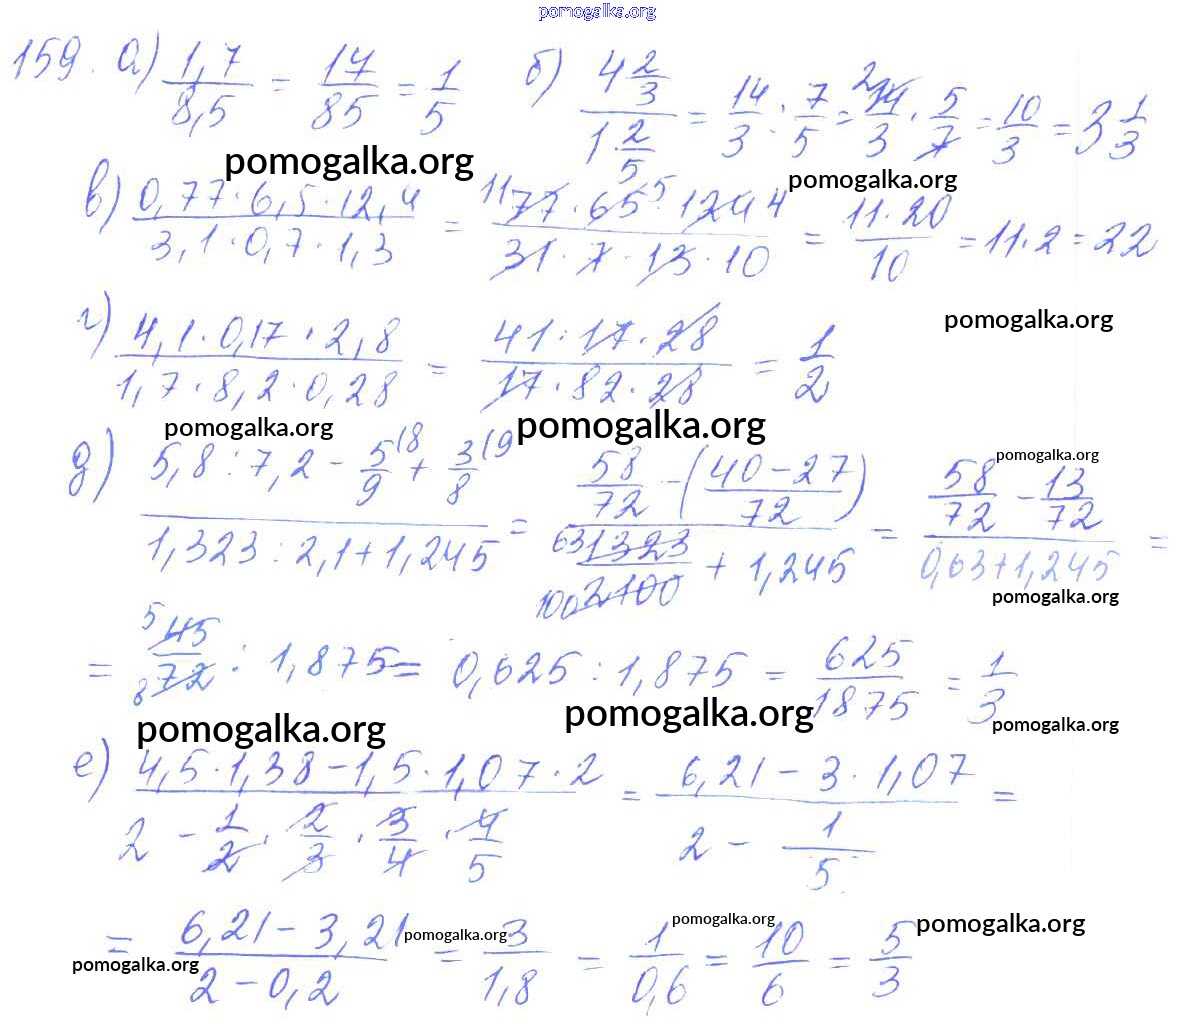 pomogalka.org
159. а) 1,7/8,5 = 17/85 = 1/5 б) 4 2/3 / 1 2/5 = 14/3 : 7/5 = 2 14/3 · 5/7 = 10/3 = 3 1/3
pomogalka.org pomogalka.org
в) 0,77·6,5·12,4 / 3,1·0,7·1,3 = 11 77·65 5·124 4 / 31·7·13·10 = 11·20/10 = 11·2 = 22
г) 4,1·0,17·2,8 / 1,7·8,2·0,28 = 41·17·28 / 17·82·28 = 1/2
pomogalka.org
pomogalka.org pomogalka.org
д) 5,8 : 7,2 - 5/9 (8 + 3/8 (9 / 1,323 : 2,1 + 1,245 = 58/72 - (40-27/72) / 63 1323/100 2100 + 1,245 = 58/72 - 13/72 / 0,63+1,245 =
pomogalka.org
pomogalka.org
= 5 45/8 72 : 1,875 = 0,625 : 1,875 = 625/1875 = 1/3
pomogalka.org pomogalka.org pomogalka.org
е) 4,5·1,38-1,5·1,07·2 / 2 - 1/2 · 2/3 · 3/4 · 4/5 = 6,21 - 3·1,07 / 2 - 1/5 =
= 6,21 - 3,21 / 2 - 0,2 = 3/1,8 = 1/0,6 = 10/6 = 5/3
pomogalka.org pomogalka.org pomogalka.org pomogalka.org